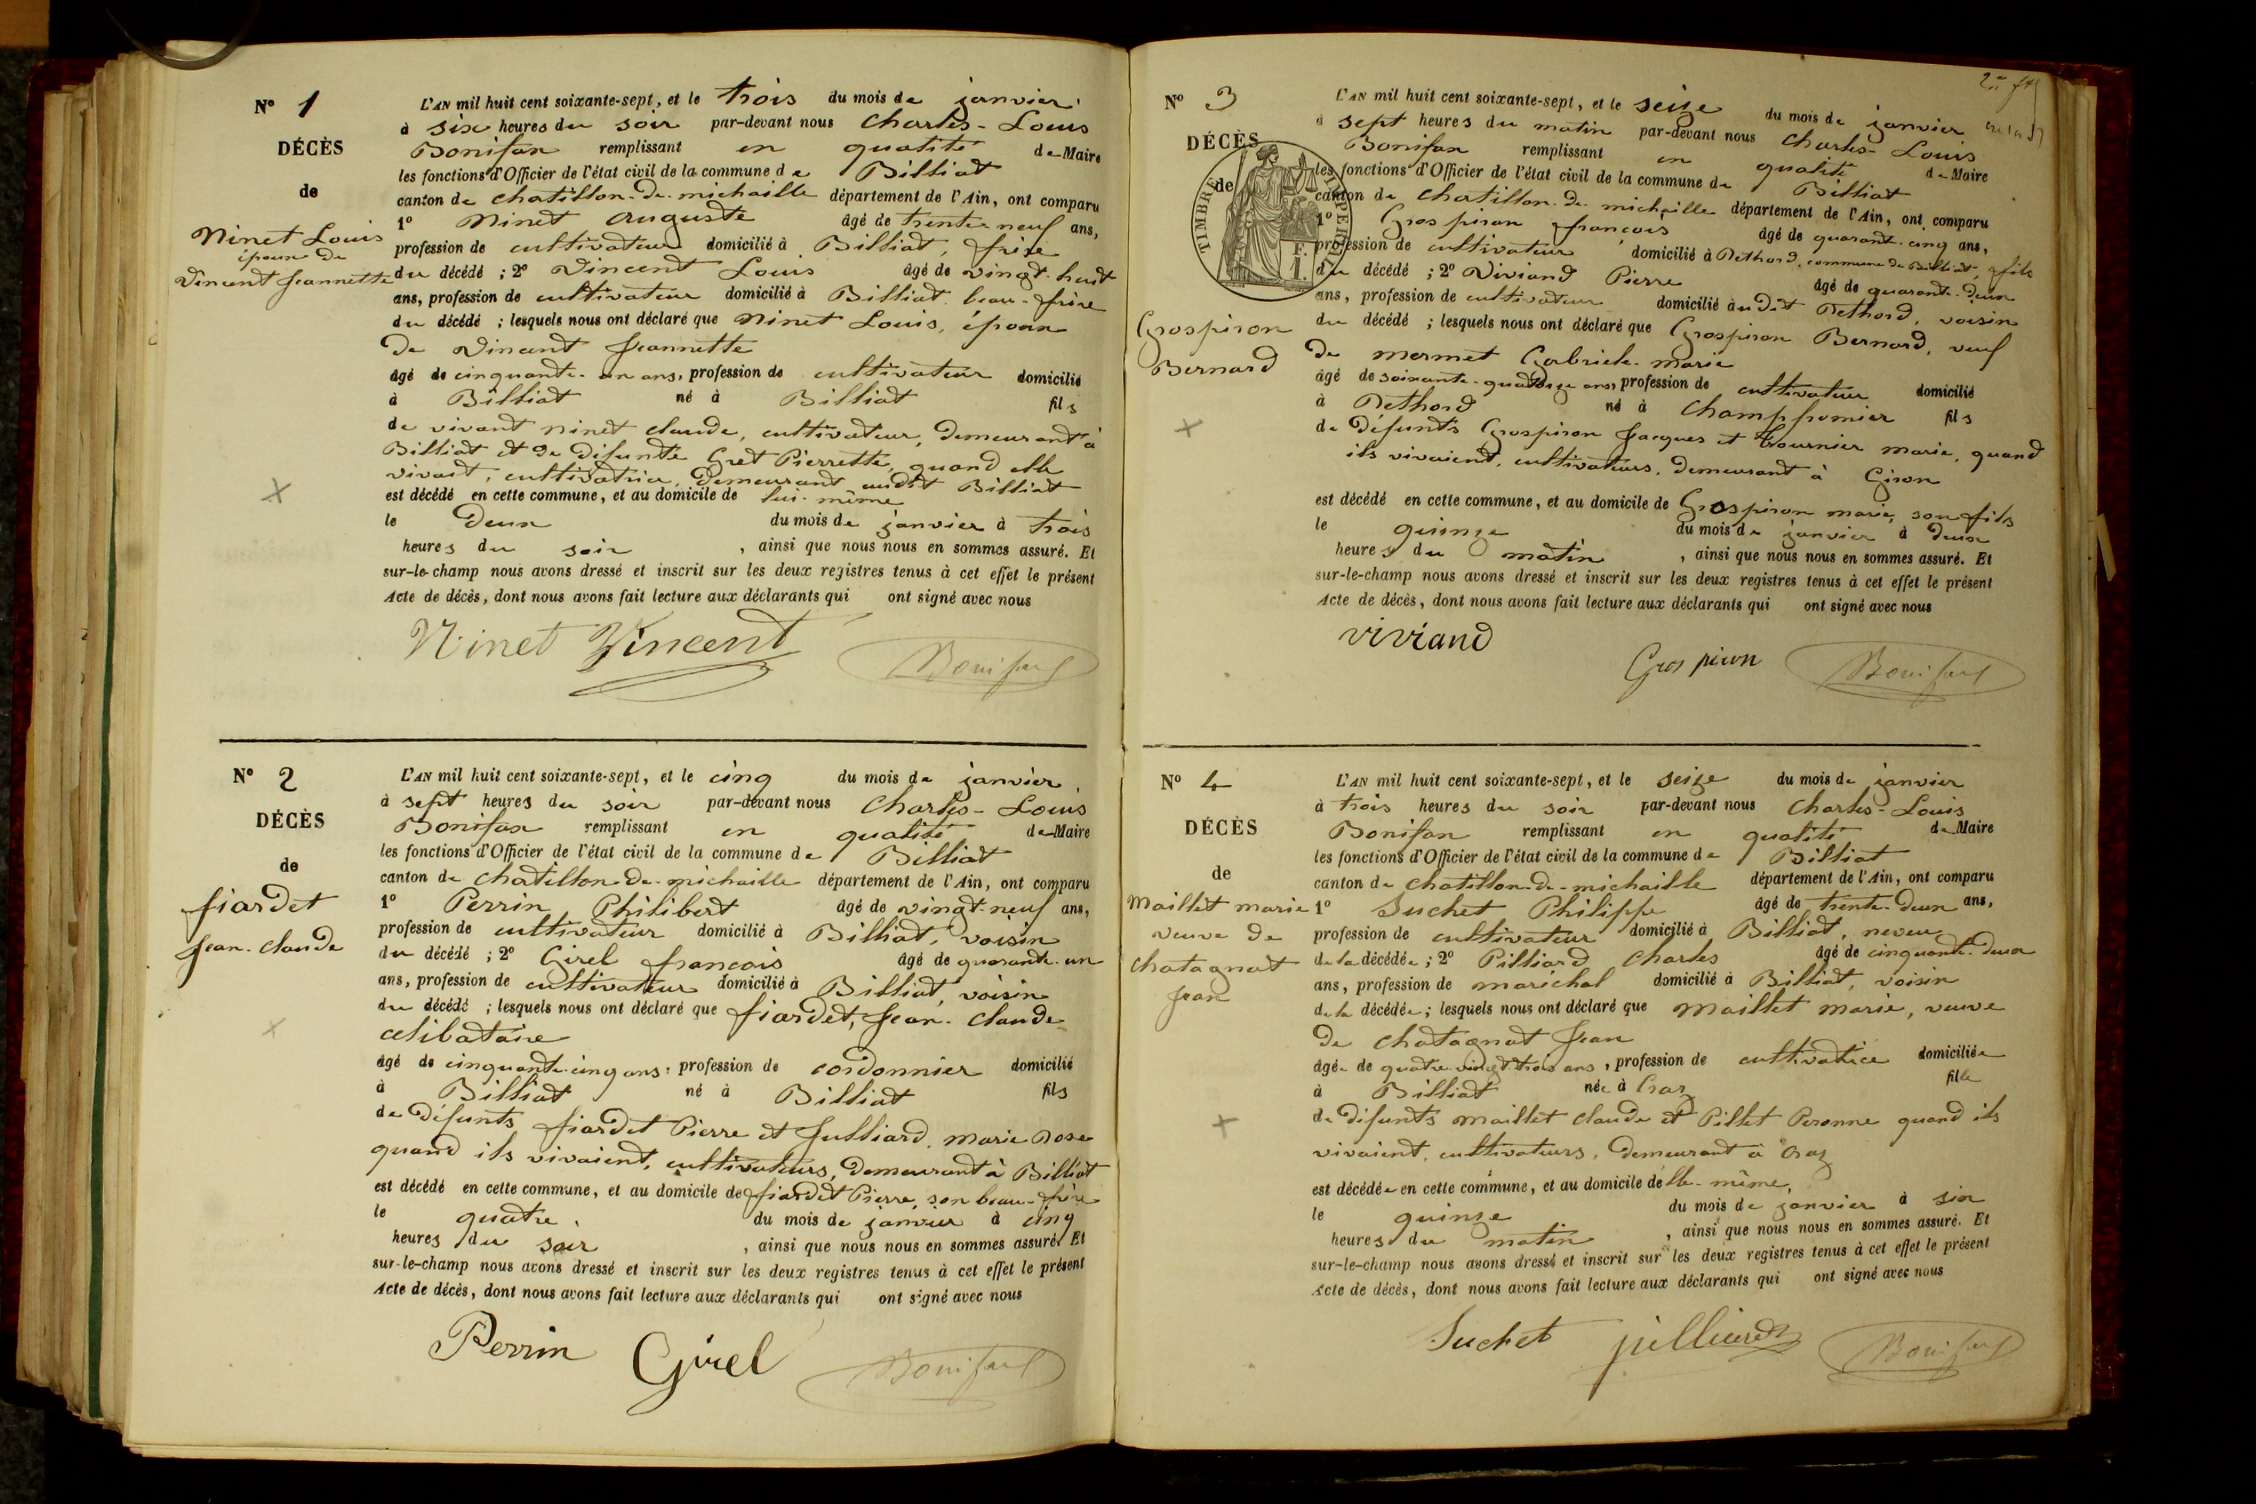 N° 1
DÉCÈS
de
Ninet Louis
époux de
Vincent Jeannette
L'AN mil huit cent soixante-sept, et le trois du mois de janvier
à six heures du soir par-devant nous Charles-Louis
Bonifax remplissant en qualité de Maire
les fonctions d'Officier de l'état civil de la commune de Billiat
canton de Chatillon-de-michaille département de l'Ain, ont comparu
1° Ninet Auguste âgé de trente-neuf ans,
profession de cultivateur domicilié à Billiat, frère
du décédé ; 2° Vincent Louis âgé de vingt-huit
ans, profession de cultivateur domicilié à Billiat, beau-frère
du décédé ; lesquels nous ont déclaré que Ninet Louis, époux
de Vincent Jeannette
âgé de cinquante-un ans, profession de cultivateur domicilié
à Billiat né à Billiat fils
de vivant Ninet Claude, cultivateur, demeurant à
Billiat et de défunte Gret Pierrette, quand elle
vivait, cultivatrice, demeurant audit Billiat
est décédé en cette commune, et au domicile de lui-même
le deux du mois de janvier à trois
heures du soir , ainsi que nous nous en sommes assuré. Et
sur-le-champ nous avons dressé et inscrit sur les deux registres tenus à cet effet le présent
Acte de décès, dont nous avons fait lecture aux déclarants qui ont signé avec nous
Ninet Vincent Bonifax
N° 2
DÉCÈS
de
fiardet
Jean-Claude
L'AN mil huit cent soixante-sept, et le cinq du mois de janvier
à sept heures du soir par-devant nous Charles-Louis
Bonifax remplissant en qualité de Maire
les fonctions d'Officier de l'état civil de la commune de Billiat
canton de Chatillon-de-michaille département de l'Ain, ont comparu
1° Perrin Philibert âgé de vingt-neuf ans,
profession de cultivateur domicilié à Billiat, voisin
du décédé ; 2° Girel françois âgé de quarante-un
ans, profession de cultivateur domicilié à Billiat, voisin
du décédé ; lesquels nous ont déclaré que fiardet, Jean-Claude
célibataire
âgé de cinquante-cinq ans, profession de cordonnier domicilié
à Billiat né à Billiat fils
de défunts fiardet Pierre et Julliard, Marie Rose
quand ils vivaient, cultivateurs, demeurant à Billiat
est décédé en cette commune, et au domicile de fiardet Pierre, son beau-frère
le quatre du mois de janvier à cinq
heures du soir , ainsi que nous nous en sommes assuré. Et
sur-le-champ nous avons dressé et inscrit sur les deux registres tenus à cet effet le présent
Acte de décès, dont nous avons fait lecture aux déclarants qui ont signé avec nous
Perrin Girel Bonifax
N° 3
DÉCÈS
de
TIMBRE IMPERIAL
F. 1
Grospiron
Bernard
L'AN mil huit cent soixante-sept, et le seize du mois de janvier
à sept heures du matin par-devant nous Charles-Louis
Bonifax remplissant en qualité de Maire
les fonctions d'Officier de l'état civil de la commune de Billiat
canton de Chatillon-de-michaille département de l'Ain, ont comparu
1° Grospiron françois âgé de quarante-cinq ans,
profession de cultivateur domicilié à Rethord, commune de Billiat, fils
du décédé ; 2° Viviand Pierre âgé de quarante-deux
ans, profession de cultivateur domicilié audit Rethord, voisin
du décédé ; lesquels nous ont déclaré que Grospiron Bernard, veuf
de Mermet Gabriele-marie
âgé de soixante-quatorze ans, profession de cultivateur domicilié
à Rethord né à Champfromier fils
de défunts Grospiron Jacques et Tournier Marie, quand
ils vivaient, cultivateurs, demeurant à Giron
est décédé en cette commune, et au domicile de Grospiron marie, son fils
le quinze du mois de janvier à deux
heures du matin , ainsi que nous nous en sommes assuré. Et
sur-le-champ nous avons dressé et inscrit sur les deux registres tenus à cet effet le présent
Acte de décès, dont nous avons fait lecture aux déclarants qui ont signé avec nous
viviand Grospiron Bonifax
N° 4
DÉCÈS
de
Maillet marie
veuve de
Chatagnat
Jean
L'AN mil huit cent soixante-sept, et le seize du mois de janvier
à trois heures du soir par-devant nous Charles-Louis
Bonifax remplissant en qualité de Maire
les fonctions d'Officier de l'état civil de la commune de Billiat
canton de Chatillon-de-michaille département de l'Ain, ont comparu
1° Suchet Philippe âgé de trente-deux ans,
profession de cultivateur domicilié à Billiat, neveu
de la décédée ; 2° Pilliard Charles âgé de cinquante-deux
ans, profession de maréchal domicilié à Billiat, voisin
de la décédée ; lesquels nous ont déclaré que Maillet marie, veuve
de Chatagnat Jean
âgée de quatre-vingt-trois ans, profession de cultivatrice domiciliée
à Billiat née à Craz fille
de défunts Maillet Claude et Pillet Peronne quand ils
vivaient, cultivateurs, demeurant à Craz
est décédée en cette commune, et au domicile d'elle-même,
le quinze du mois de janvier à six
heures du matin , ainsi que nous nous en sommes assuré. Et
sur-le-champ nous avons dressé et inscrit sur les deux registres tenus à cet effet le présent
Acte de décès, dont nous avons fait lecture aux déclarants qui ont signé avec nous
Suchet pilliard Bonifax